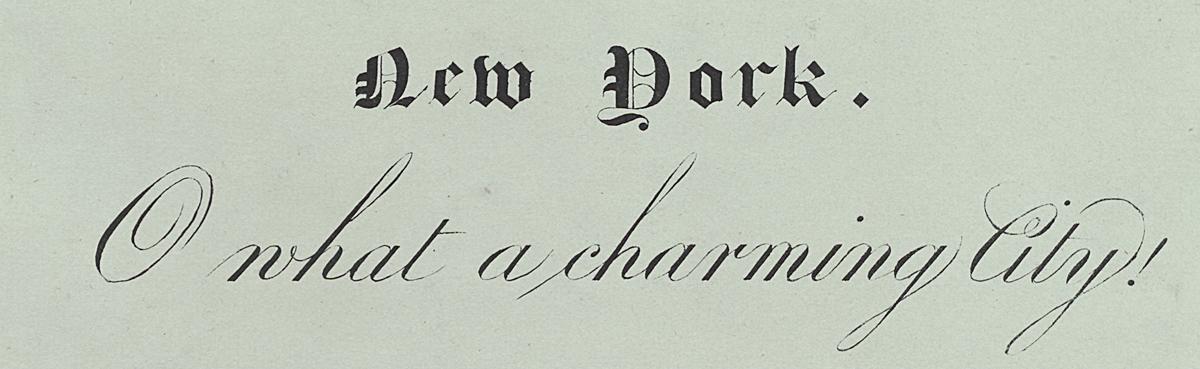 New York.
O what a charming City!